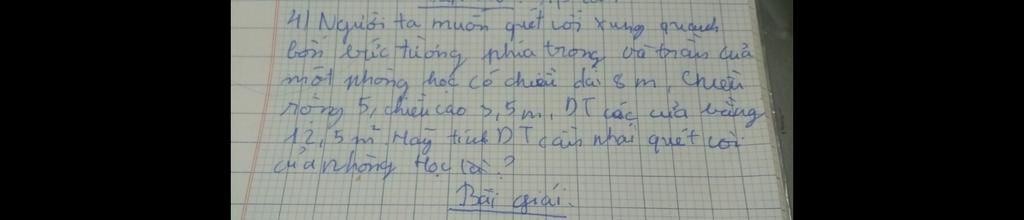 4) Người ta muốn quét vôi xung quanh
bốn bức tường phía trong và trần của
một phòng học có chiều dài 8 m, chiều
rộng 5, chiều cao 3,5 m, DT các cửa bằng
12,5 m Hãy tính DT cần phải quét vôi
của phòng học là?
Bài giải.